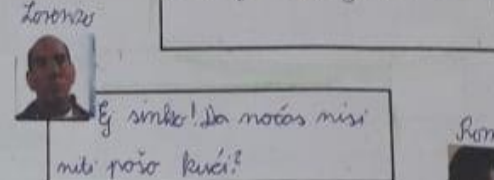 Lorenzo
Ej sinko! Da noćas nisi
niti pošo kući?
Rom